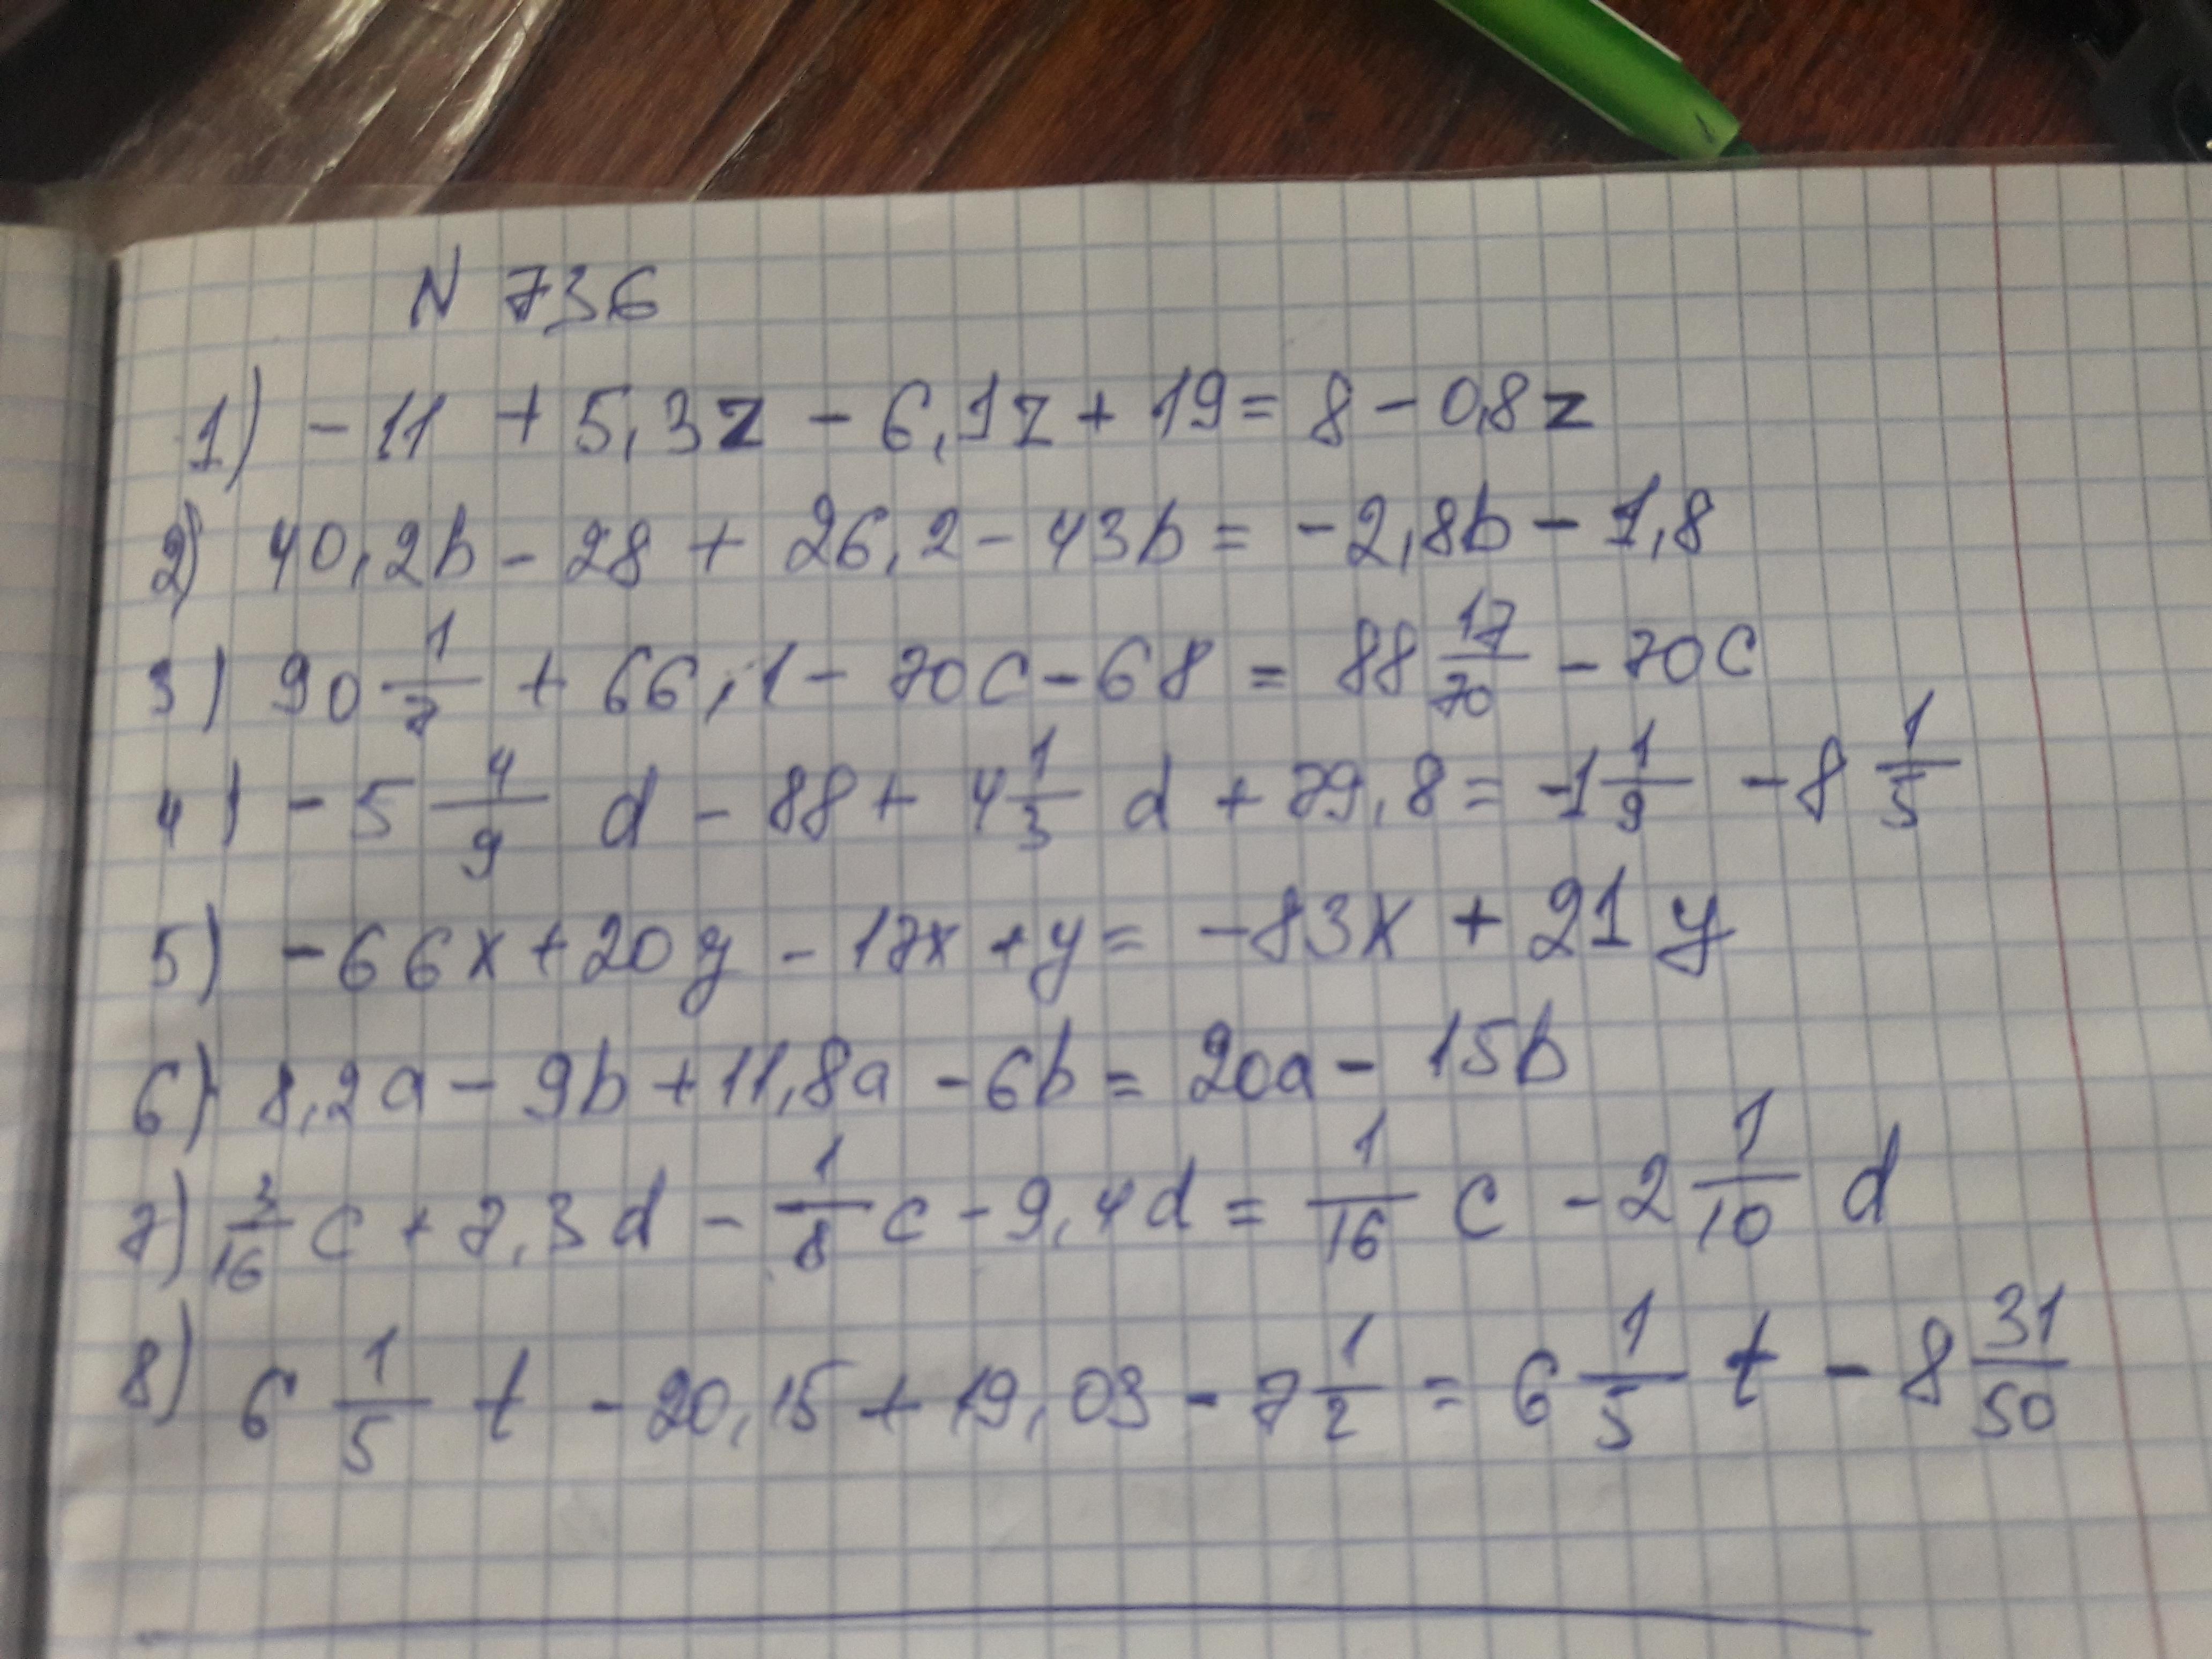 N 736
1) - 11 + 5,3z - 6,1z + 19 = 8 - 0,8z
2) 40,2b - 28 + 26,2 - 43b = -2,8b - 1,8
3) 90 1/7 + 66,1 - 70c - 68 = 88 17/70 - 70c
4) - 5 4/9 d - 88 + 4 1/3 d + 79,8 = -1 1/9 - 8 1/5
5) - 66x + 20y - 17x + y = -83x + 21y
6) 8,2a - 9b + 11,8a - 6b = 20a - 15b
7) 3/16 c + 7,3d - 1/8 c - 9,4d = 1/16 c - 2 1/10 d
8) 6 1/5 t - 20,15 + 19,03 - 7 1/2 = 6 1/5 t - 8 31/50